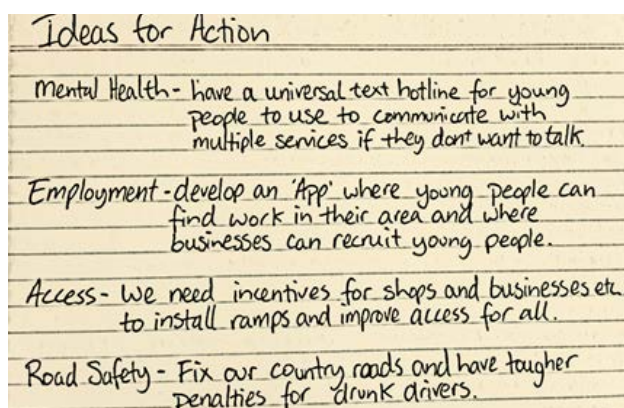 Ideas for Action
Mental Health - have a universal text hotline for young
people to use to communicate with
multiple services if they dont want to talk.
Employment - develop an 'App' where young people can
find work in their area and where
businesses can recruit young people.
Access - We need incentives for shops and businesses etc
to install ramps and improve access for all.
Road Safety - Fix our country roads and have tougher
penalties for drunk drivers.